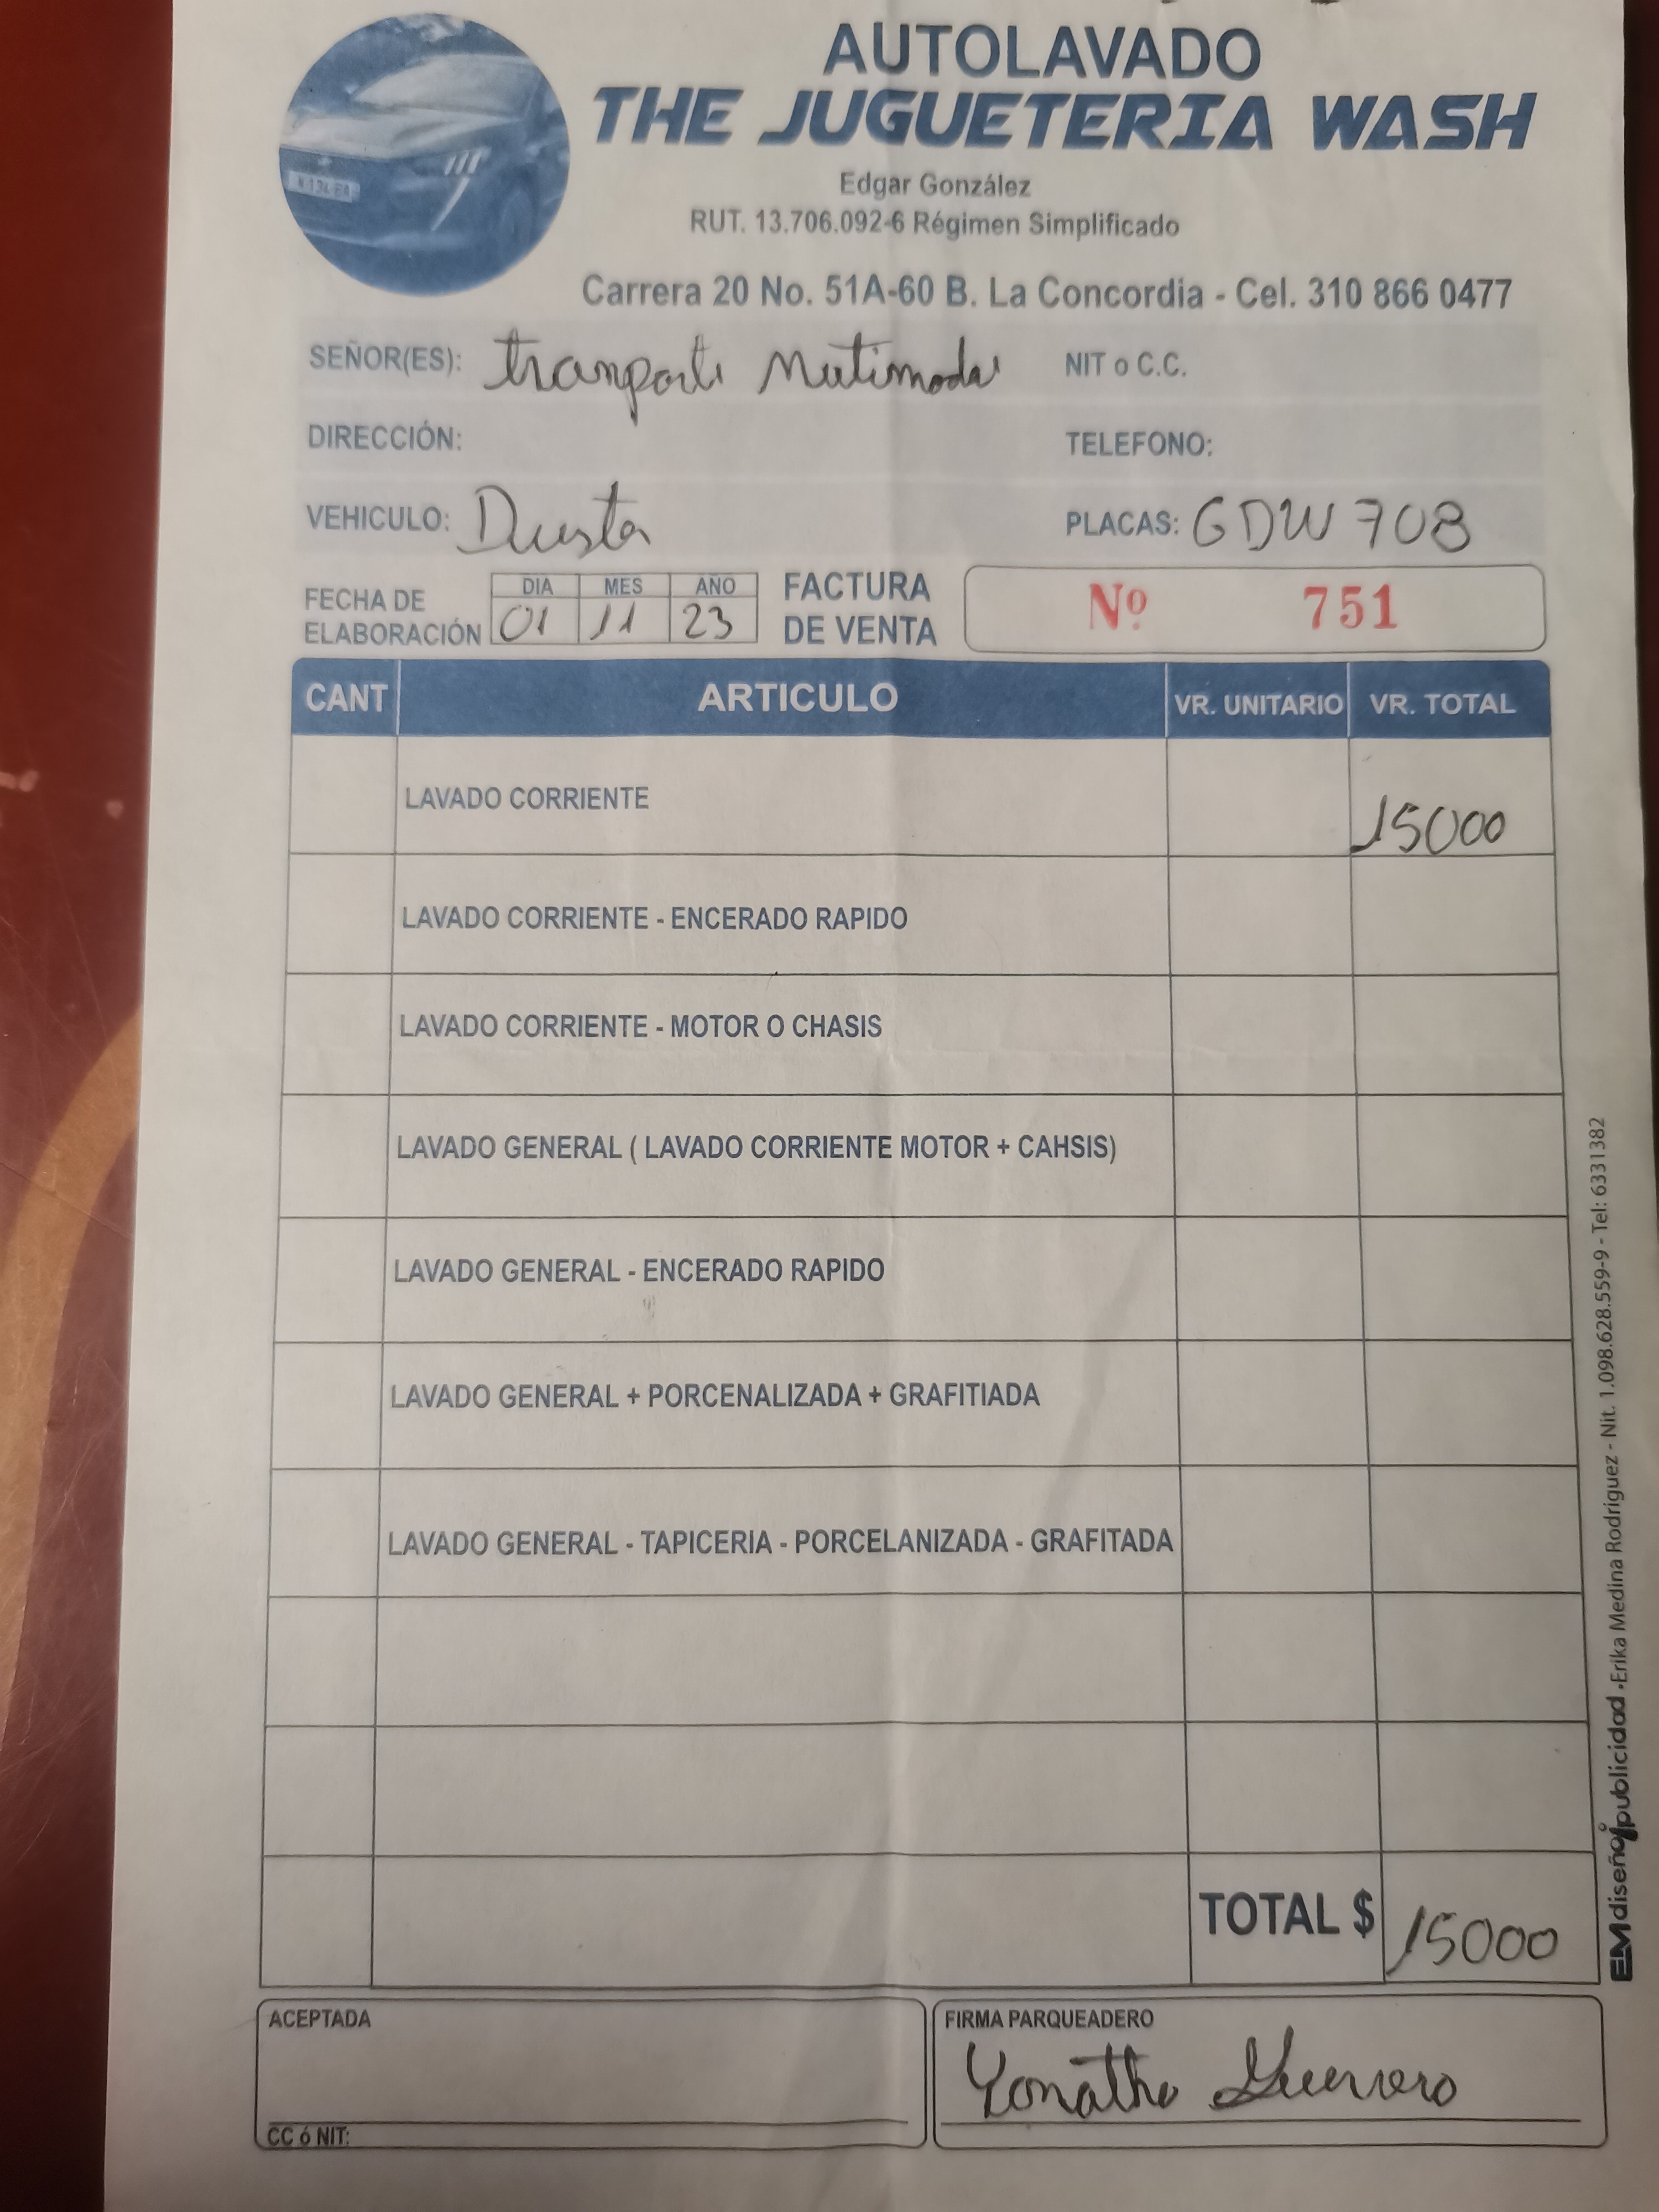 AUTOLAVADO
THE JUGUETERIA WASH
Edgar González
RUT. 13.706.092-6 Régimen Simplificado
Carrera 20 No. 51A-60 B. La Concordia - Cel. 310 866 0477
SEÑOR(ES): tranporte Mutimodal NIT o C.C.
DIRECCIÓN: TELEFONO:
VEHICULO: Duster PLACAS: GDW 708
FECHA DE ELABORACIÓN DIA MES AÑO
01 11 23
FACTURA DE VENTA Nº 751
CANT ARTICULO VR. UNITARIO VR. TOTAL
LAVADO CORRIENTE 15000
LAVADO CORRIENTE - ENCERADO RAPIDO
LAVADO CORRIENTE - MOTOR O CHASIS
LAVADO GENERAL ( LAVADO CORRIENTE MOTOR + CAHSIS)
LAVADO GENERAL - ENCERADO RAPIDO
LAVADO GENERAL + PORCENALIZADA + GRAFITIADA
LAVADO GENERAL - TAPICERIA - PORCELANIZADA - GRAFITADA
TOTAL $ 15000
ACEPTADA
CC ó NIT:
FIRMA PARQUEADERO
Yonatha Guerrero
EMdiseño&publicidad •Erika Medina Rodriguez - Nit. 1.098.628.559-9 - Tel: 6331382